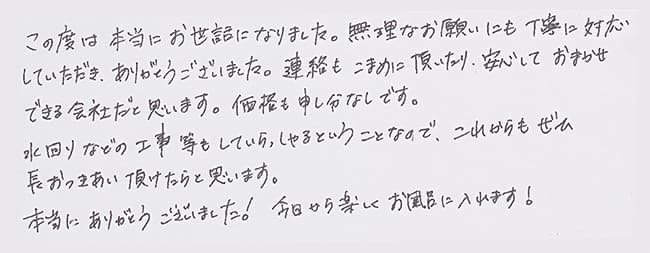 この度は本当にお世話になりました。無理なお願いにも丁寧に対応
していただき、ありがとうございました。連絡もこまめに頂いたり、安心しておまかせ
できる会社だと思います。価格も申し分なしです。
水回りなどの工事等もしていらっしゃるということなので、これからもぜひ
長おつきあい頂けたらと思います。
本当にありがとうございました！今日から楽しくお風呂に入れます！